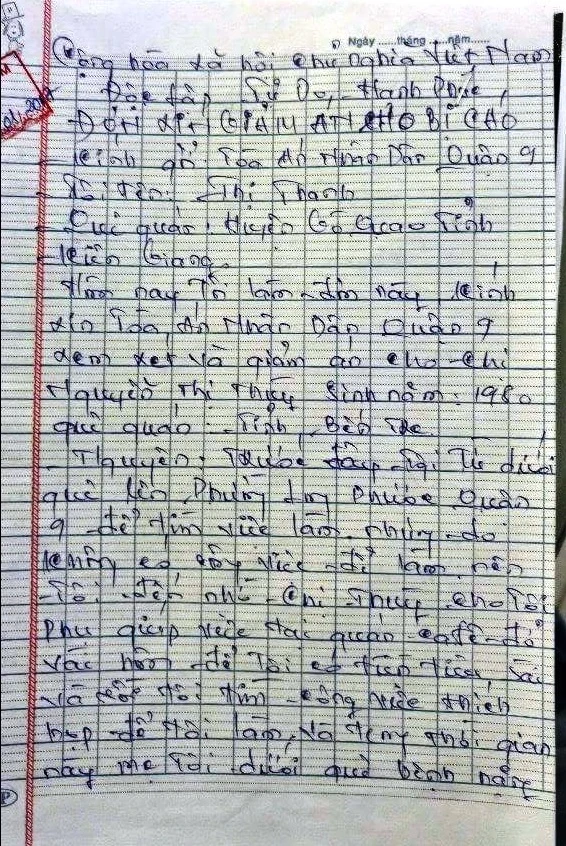 Ngày ......tháng ......năm......
Cộng hòa xã hội chủ nghĩa Việt Nam
Độc lập Tự Do, Hạnh Phúc,
ĐƠN XIN GIẢM ÁN CHO BỊ CÁO
Kính gở: Tòa Án Nhân Dân Quận 9
Tôi tên: Thị Thanh
Quê quán: Huyện Gò Quao Tỉnh
Kiên Giang
Hôm nay Tôi làm đơn này, kính
xin Tòa, Án Nhân Dân Quận 9
xem xét và giảm án cho chị
Nguyễn Thị Thủy Sinh năm: 1980
quê quán: Tỉnh Bến Tre
Nguyên: Trước đây Tôi Từ dưới
quê lên Phường Phước Quận
9 để tìm việc làm nhưng do
không có việc để làm nên
Tôi đến nhờ chị Thủy cho Tôi
Phụ giúp việc tại quán cafê đó
vài hôm để Tôi có tiền tiêu, Sài
và tôi tìm công việc thích
hợp để tôi làm, Và thời gian
này mẹ Tôi dưới quê bệnh nặng